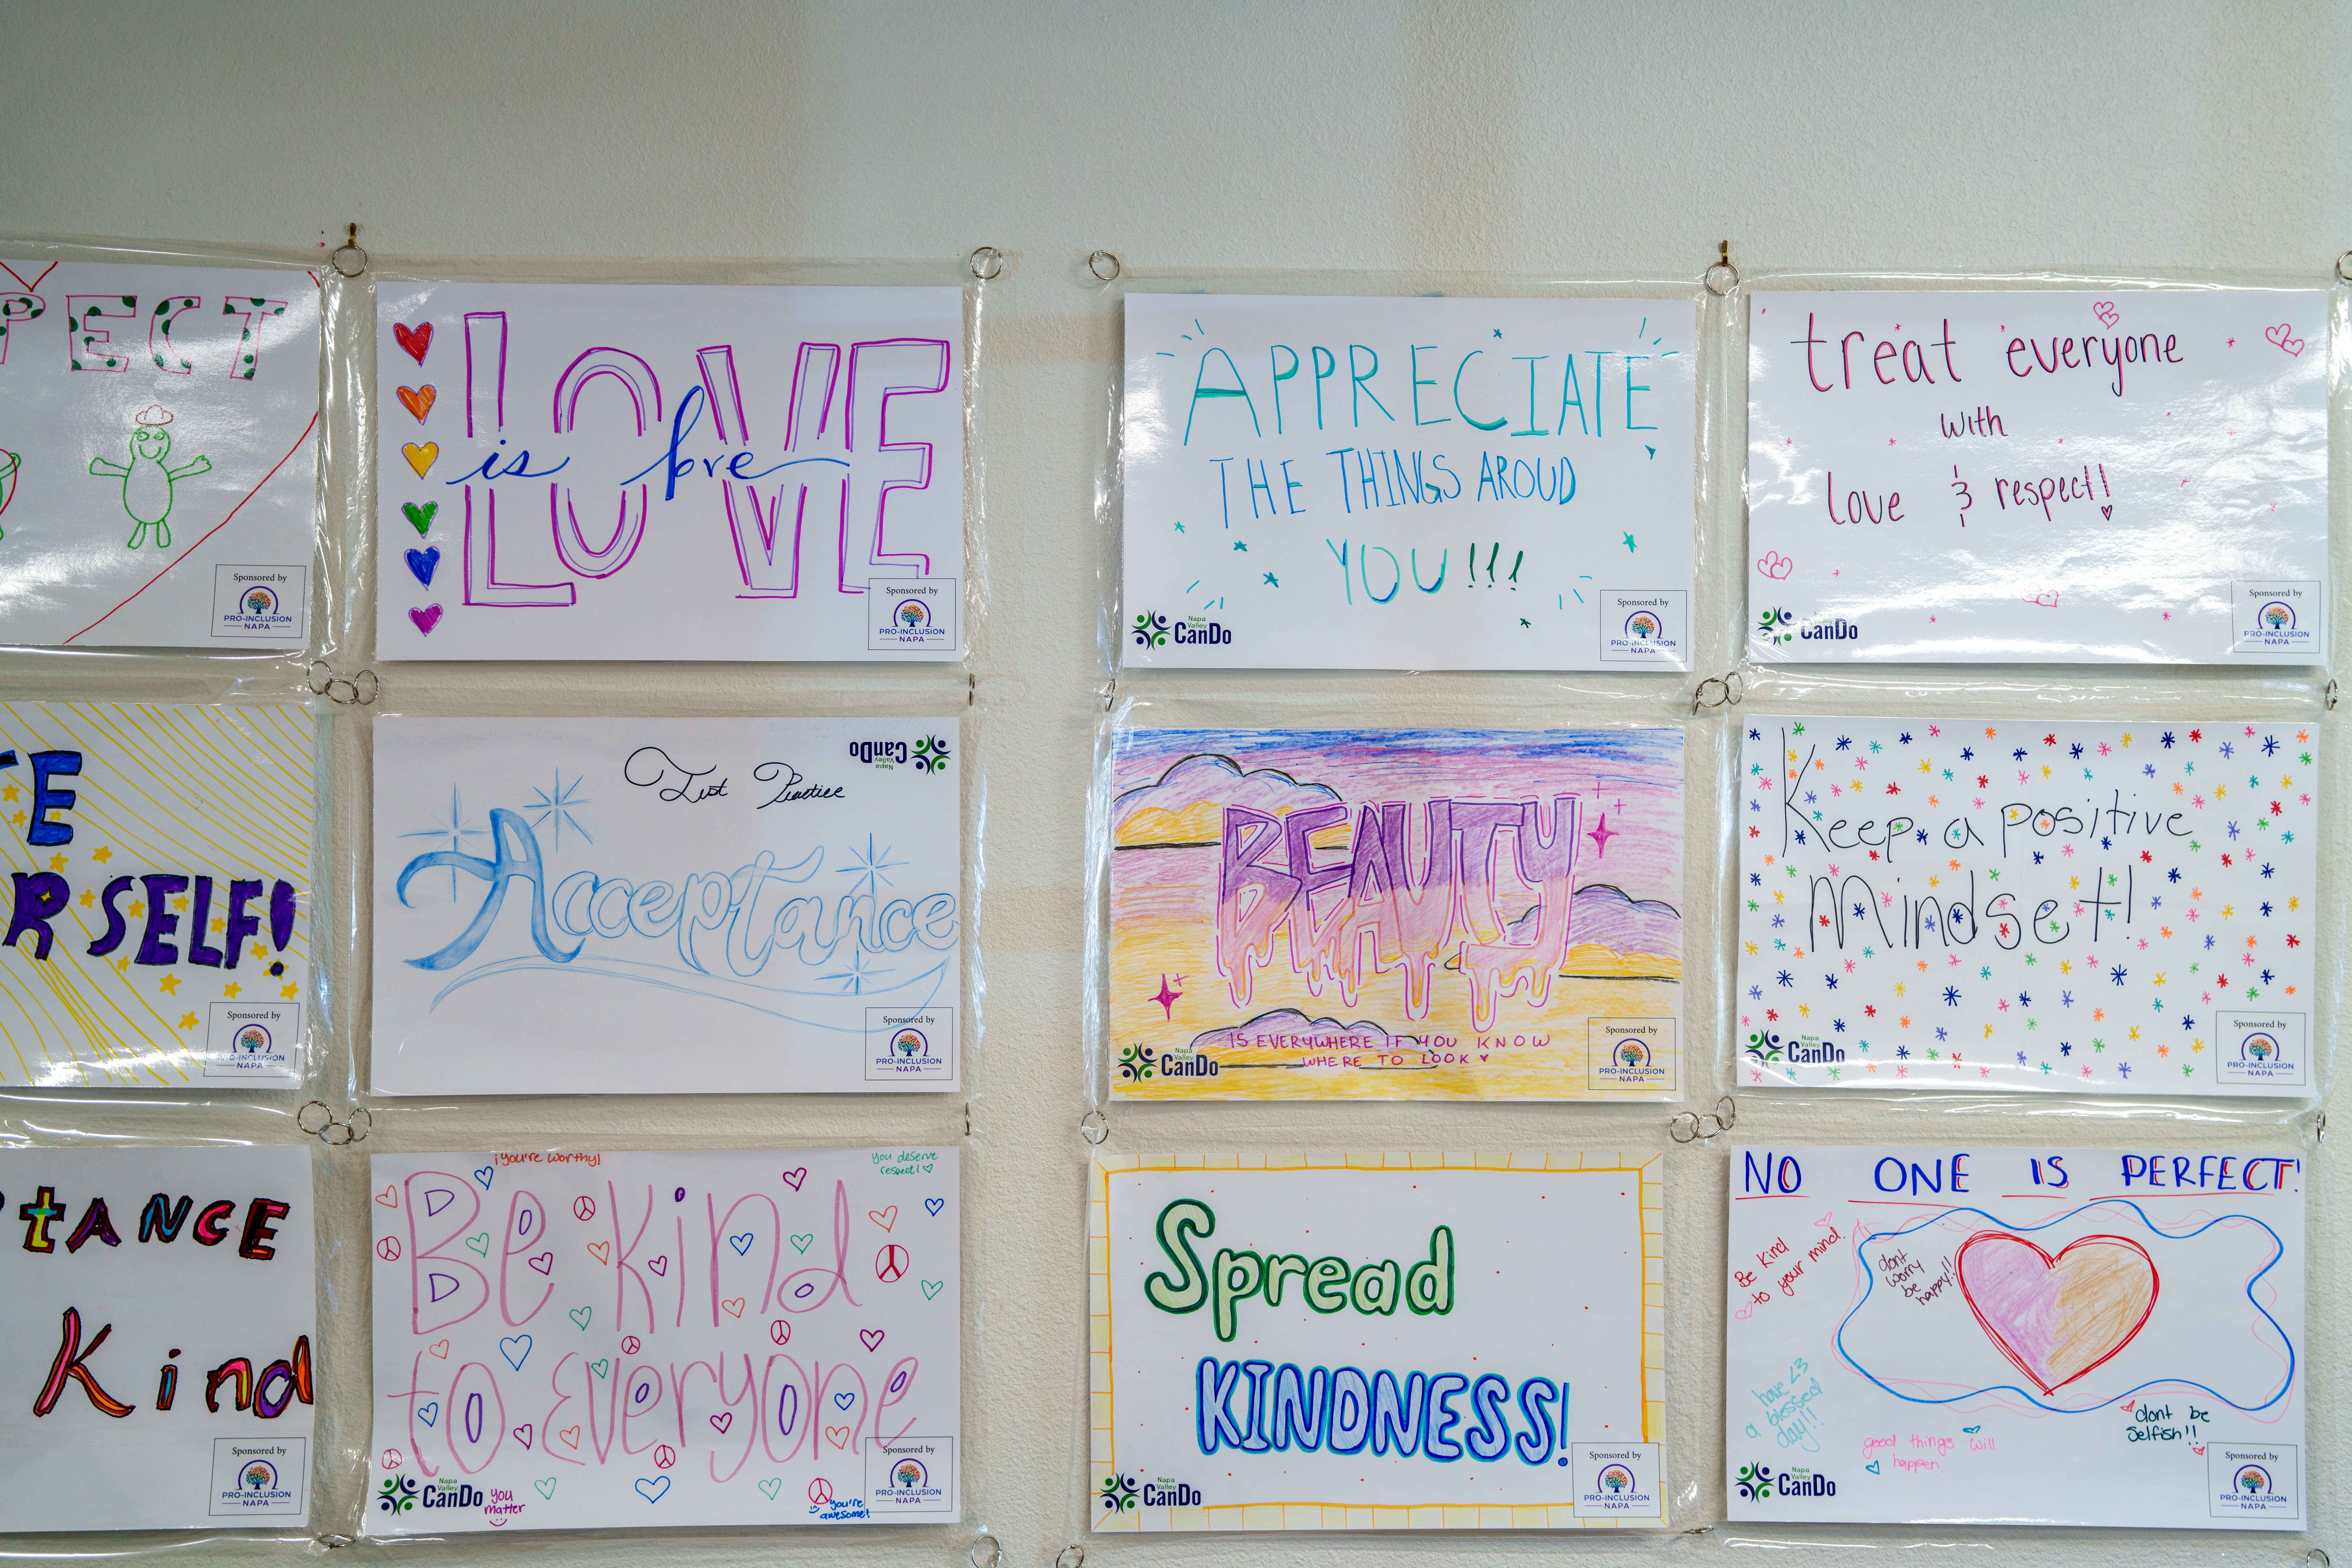 PECT
Sponsored by
PRO-INCLUSION
NAPA
LOVE
is love
Sponsored by
PRO-INCLUSION
NAPA
APPRECIATE
THE THINGS AROUD
YOU!!!
Napa
Valley
CanDo
Sponsored by
PRO-INCLUSION
NAPA
treat everyone
with
love & respect!!
CanDo
Sponsored by
PRO-INCLUSION
NAPA
E
R SELF!
Sponsored by
PRO-INCLUSION
NAPA
Just Practice
Napa
Valley
CanDo
Acceptance
Sponsored by
PRO-INCLUSION
NAPA
BEAUTY
IS EVERYWHERE IF YOU KNOW
WHERE TO LOOK
Napa
Valley
CanDo
Sponsored by
PRO-INCLUSION
NAPA
Keep a positive
Mindset!
Napa
Valley
CanDo
Sponsored by
PRO-INCLUSION
NAPA
tANCE
Kind
Sponsored by
PRO-INCLUSION
NAPA
¡you're worthy!
you deserve
respect!
Be Kind
to Everyone
Napa
Valley
CanDo
you
matter
you're
awesome!
Sponsored by
PRO-INCLUSION
NAPA
Spread
KINDNESS!
Napa
Valley
CanDo
Sponsored by
PRO-INCLUSION
NAPA
NO ONE IS PERFECT!
Be Kind
to your mind
dont
worry
be
happy!!
have <3
a blessed
day!!
good things will
happen
dont be
selfish!!
Napa
Valley
CanDo
Sponsored by
PRO-INCLUSION
NAPA